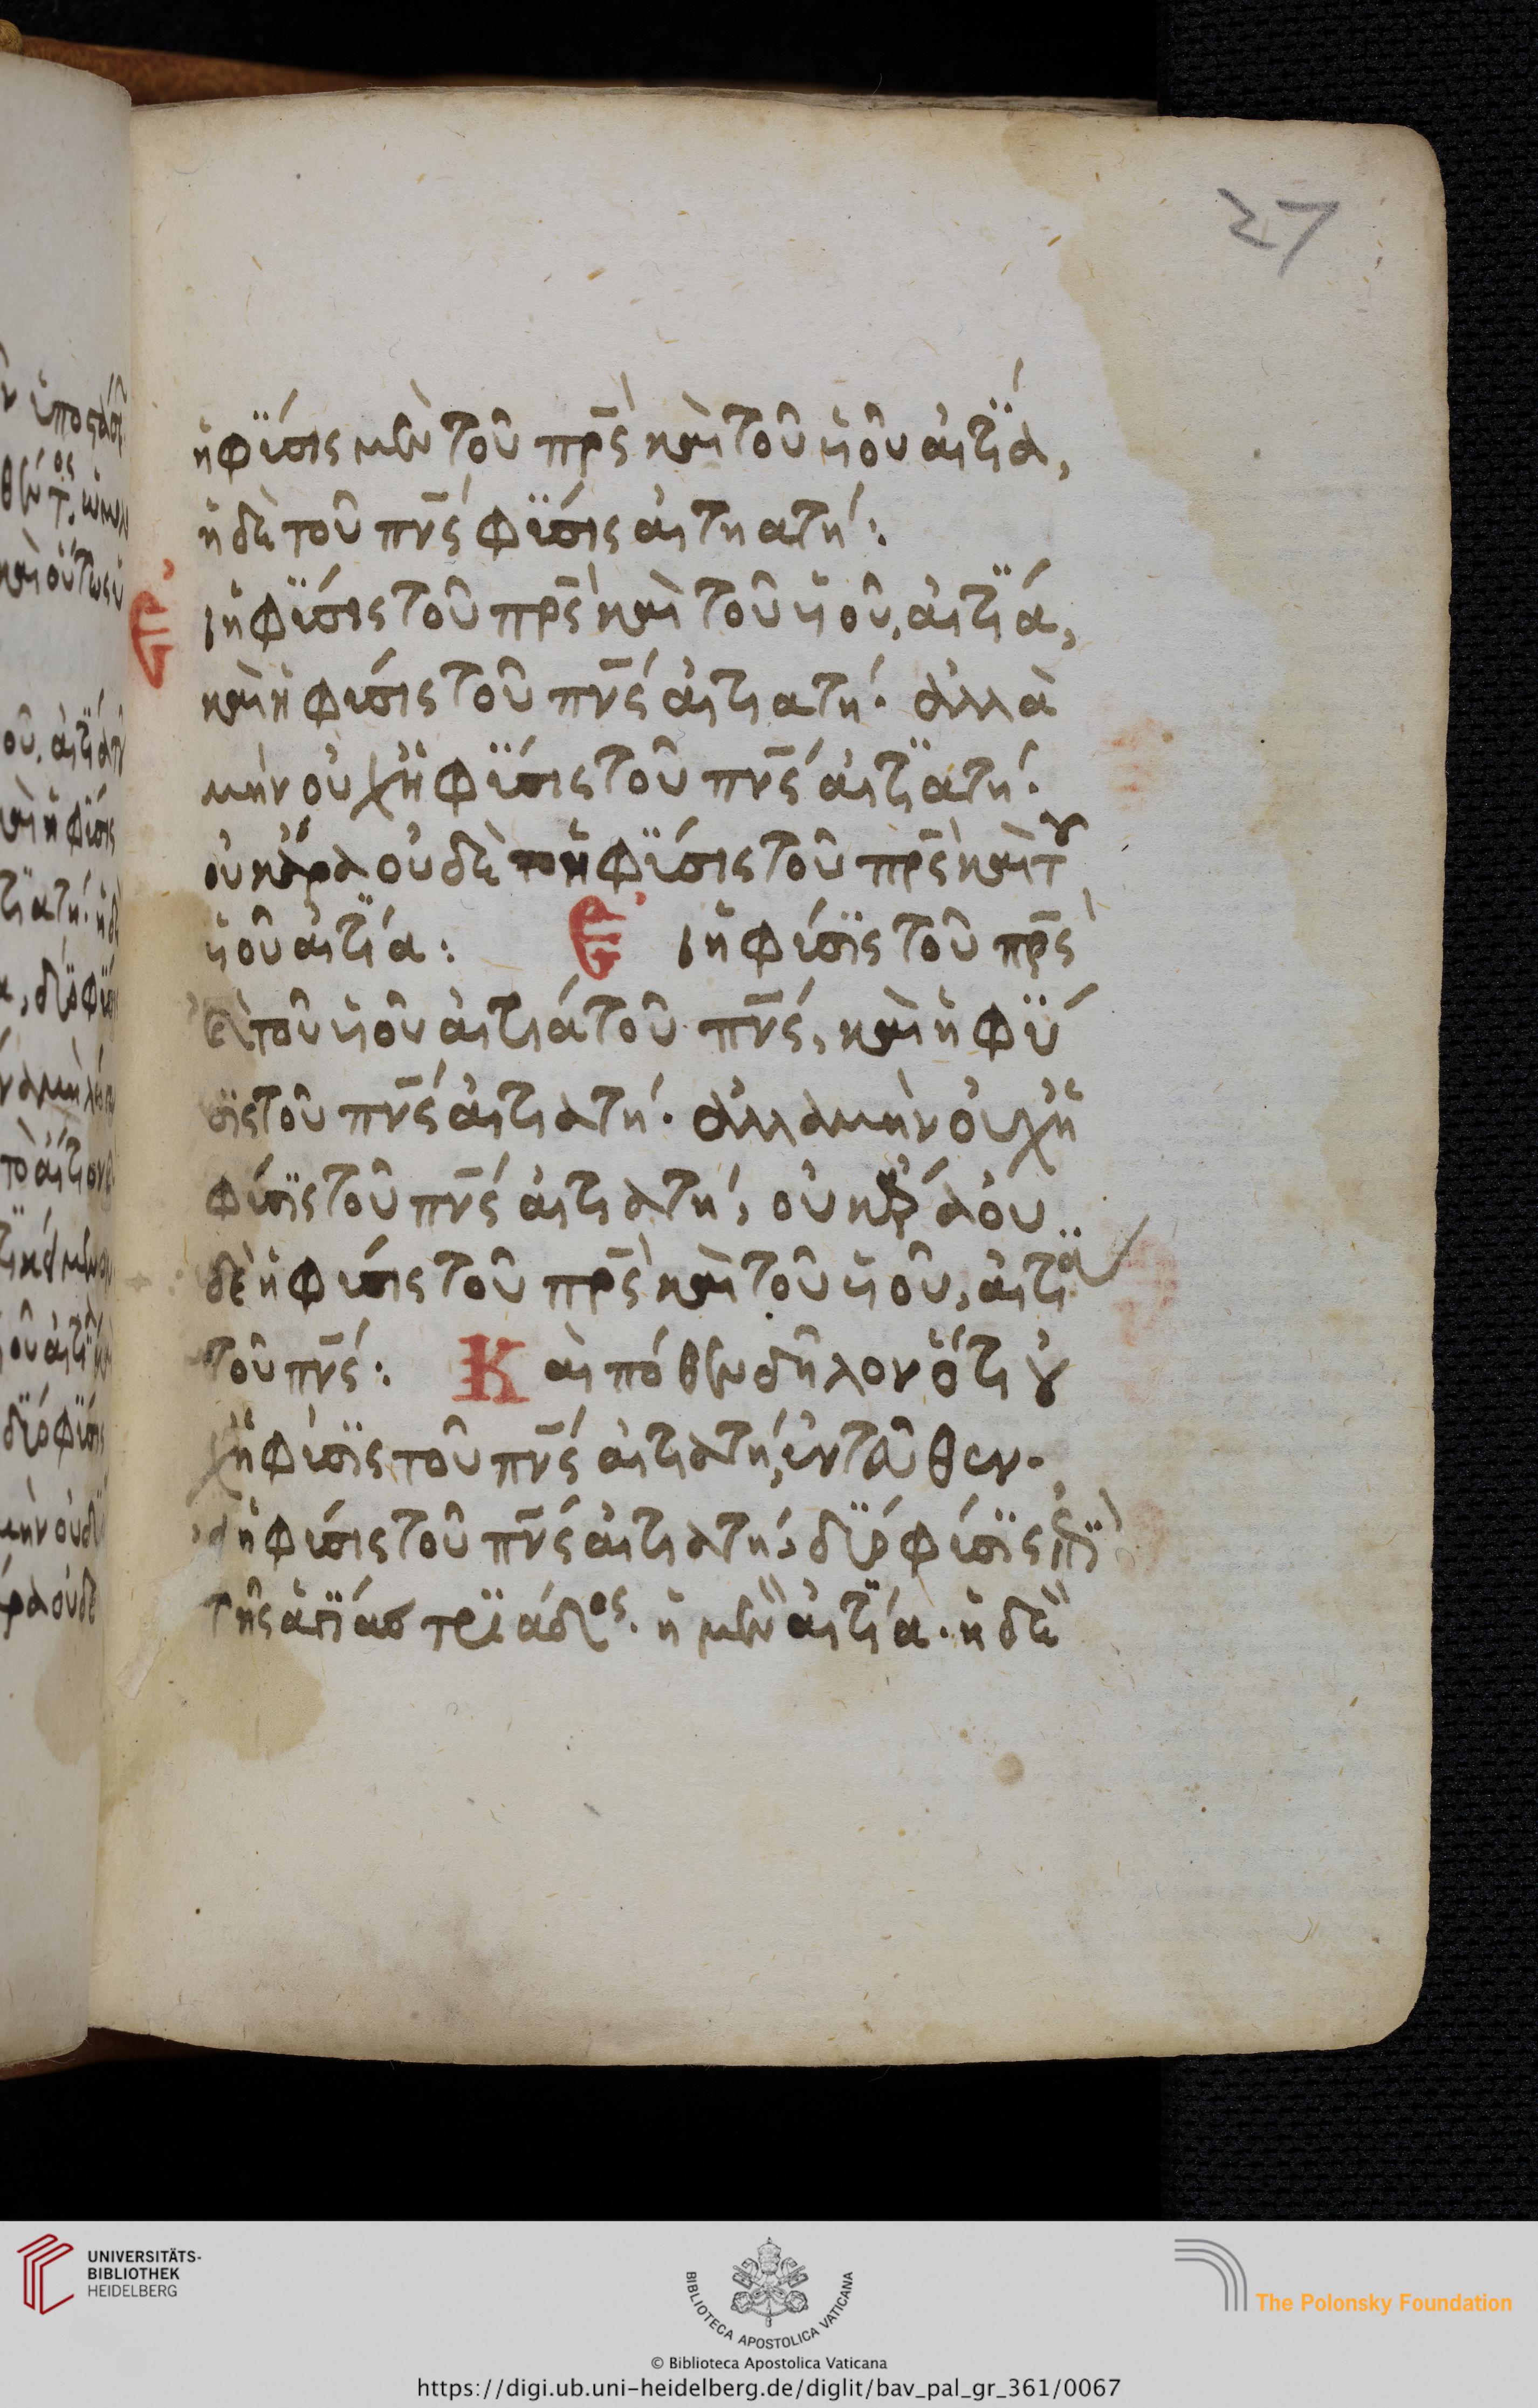 27
ἡ φϋσις μὲν τοῦ πρ̅ς καὶ τοῦ ὑιοῦ αἰτϊά,
ἡ δὲ τοῦ πν̅ς φϋσις αἰτηατή:
Ἐι ἡ φϋσις τοῦ πρ̅ς καὶ τοῦ ὑιοῦ, αἰτϊά,
καὶ ἡ φύσις τοῦ πν̅ς αἰτιατή. ἀλλὰ
μὴν οὐχ ἡ φϋσις τοῦ πν̅ς αἰτϊατή.
οὐκ ἄρα οὐδὲ ἡ φϋσις τοῦ πρ̅ς καὶ τȣ
ὑιοῦ αἰτϊά: Ἐι ἡ φύσϊς τοῦ πρ̅ς
τοῦ ὑιοῦ αἰτιά τοῦ πν̅ς, καὶ ἡ φϋ
σϊς τοῦ πν̅ς αἰτιατή. ἀλλα μὴν οὐχ ἡ
φύσϊς τοῦ πν̅ς αἰτιατή, οὐκ ἄρα οὐ
δὲ ἡ φύσις τοῦ πρ̅ς καὶ τοῦ ὑιοῦ, αἰτιϊὰ
τοῦ πν̅ς: Καὶ πόθεν δῆλον ὅτι ȣ
χ ἡ φύσϊς τοῦ πν̅ς αἰτιατή, ἐντεῦθεν.
ἡ φύσις τοῦ πν̅ς αἰτιατή, δύο φύσϊς
τῆς ἁγίασ τρϊάδος. ἡ μὲν αἰτϊά. ἡ δὲ
UNIVERSITÄTS-
BIBLIOTHEK
HEIDELBERG
BIBLIOTECA APOSTOLICA VATICANA
The Polonsky Foundation
© Biblioteca Apostolica Vaticana
https://digi.ub.uni-heidelberg.de/diglit/bav_pal_gr_361/0067